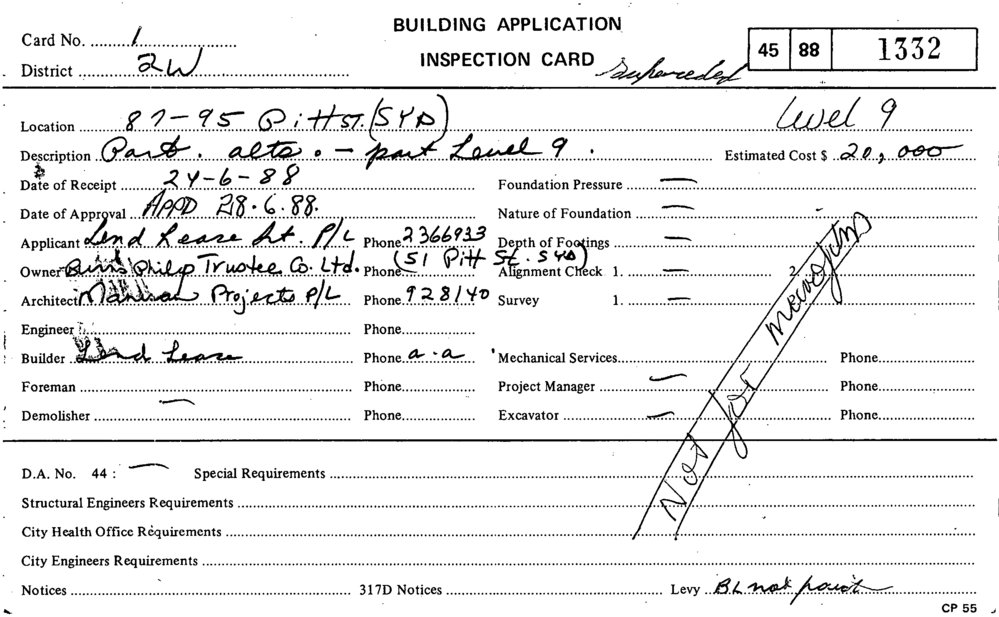 BUILDING APPLICATION
Card No. 1
INSPECTION CARD
45 88 1332
District 2W
Superceded
Location 87-95 Pitt ST. (SYD) Level 9
Description Part. alts. - part Level 9. Estimated Cost $ 20,000
Date of Receipt 24-6-88 Foundation Pressure —
Date of Approval APPD 28.6.88. Nature of Foundation —
Applicant Lend Lease Int. P/L Phone 2366933 Depth of Footings —
Owner Burns Philp Trustee Co. Ltd. Phone (51 Pitt St. SYD) Alignment Check 1. — 2
Architect Projects P/L Phone 928140 Survey 1. —
Engineer Phone
Builder Lend Lease Phone a.a Mechanical Services Phone
Foreman Phone Project Manager — Phone
Demolisher — Phone Excavator — Phone
Not for
D.A. No. 44 : — Special Requirements
Structural Engineers Requirements
City Health Office Requirements
City Engineers Requirements
Notices 317D Notices Levy BL not
CP 55